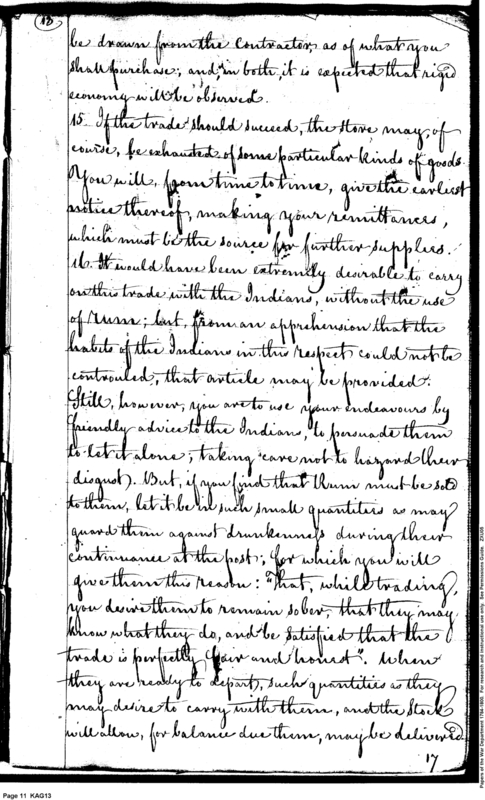 18
be drawn from the Contractor, as of what you
shall purchase; and, in both, it is expected that rigid
economy will be observed.
15. If the trade should succeed, the store may, of
course, be exhausted of some particular kinds of goods.
You will, from time to time, give the earliest
notice thereof, making your remittances,
which must be the source for further supplies.
16. It would have been extremely desirable to carry
on this trade with the Indians, without the use
of rum; but, from an apprehension that the
habits of the Indians in this respect could not be
controuled, that article may be provided.
Still, however, you are to use your endeavours by
friendly advice to the Indians, to persuade them
to let it alone; taking care not to hazard their
disgust. But, if you find that Rum must be sold
to them, let it be in such small quantities as may
guard them against drunkenness during their
continuance at the post; for which you will
give them this reason: "That, while trading,
you desire them to remain sober, that they may
know what they do, and be satisfied that the
trade is perfectly fair and honest". When
they are ready to depart, such quantities as they
may desire to carry with them, and the Stock
will allow, for balance due them, may be delivered.
17
Page 11 KAG13
Papers of the War Department 1784-1800. For research and instructional use only. See Permissions Guide ZXX08